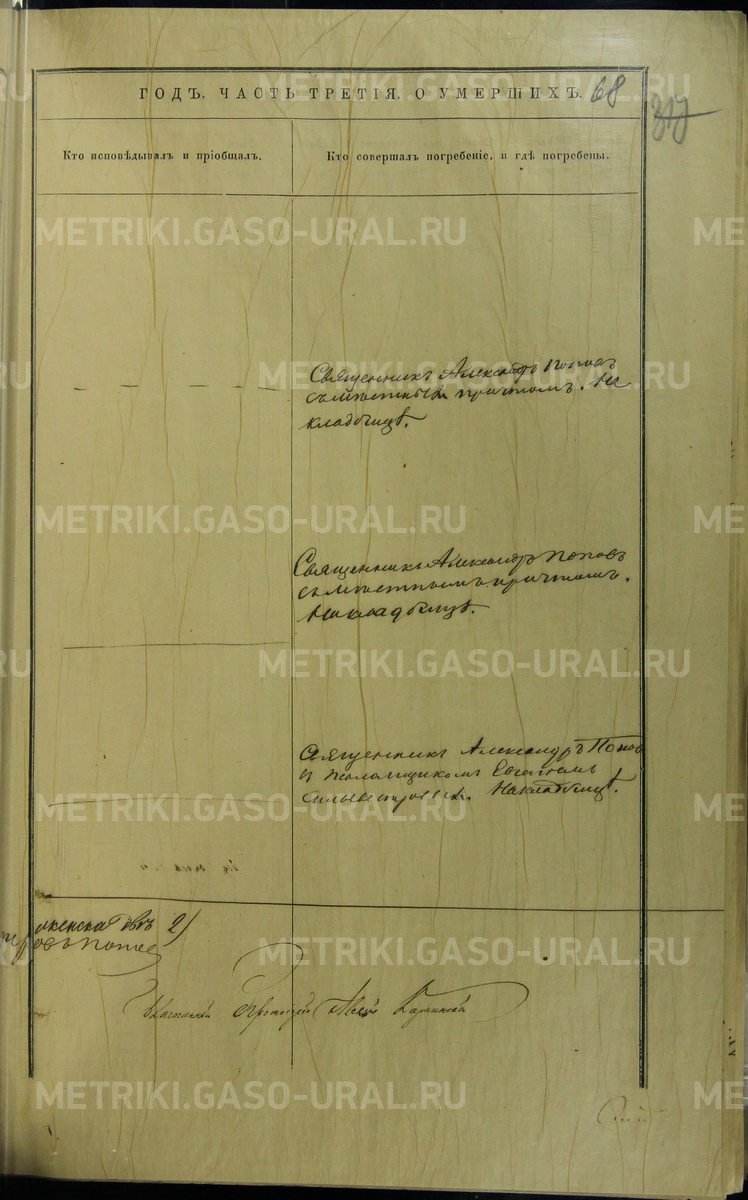 ГОДЪ. ЧАСТЬ ТРЕТІЯ, О УМЕРШИХЪ. 68
317
Кто исповѣдывалъ и пріобщалъ.
Кто совершалъ погребеніе, и гдѣ погребены.
Священникъ Александръ Поповъ
съ мѣстнымъ причтомъ. На
кладбищѣ.
Священникъ Александръ Поповъ
съ мѣстнымъ причтомъ.
На кладбищѣ.
Священникъ Александръ Попов
и псаломщикомъ Евгеніемъ
Сильвестровымъ. На кладбищѣ.
женска двѣ 2)
Благочинный Протоіерей
METRIKI.GASO-URAL.RU